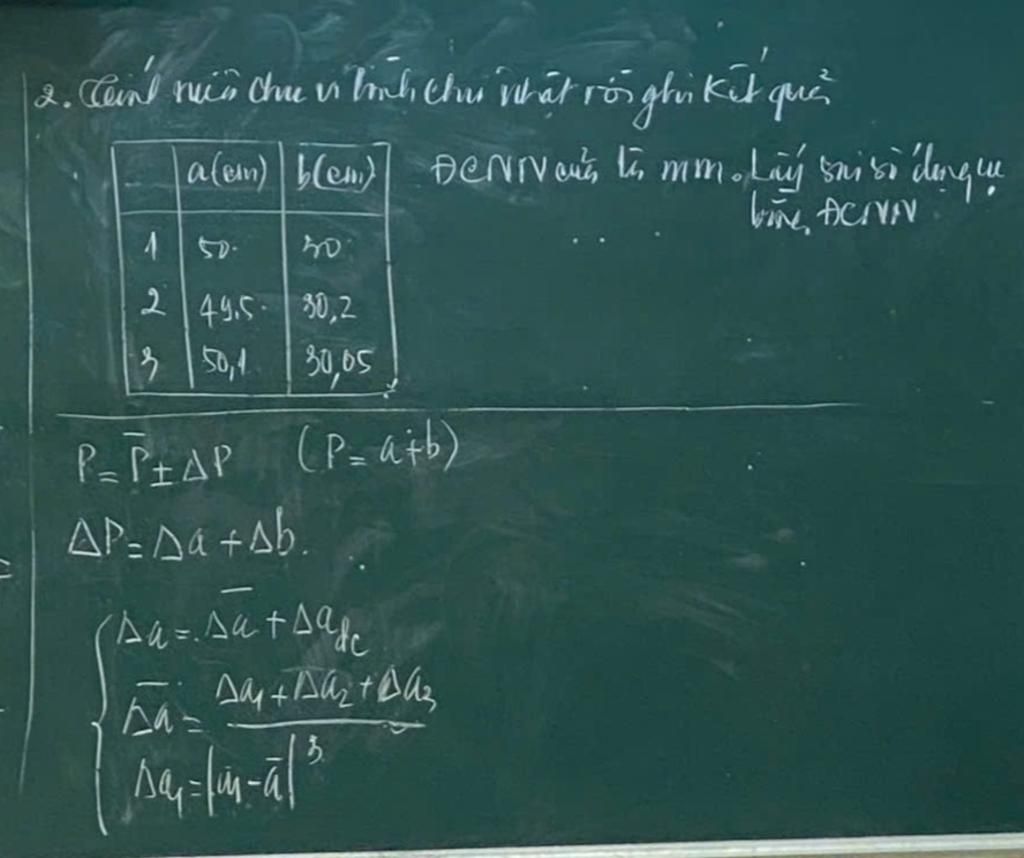 2. Tính nửa chu vi hình chữ nhật rồi ghi kết quả
a(cm) b(cm)
1 50 30
2 49,5 30,2
3 50,1 30,05
ĐCNN của là mm. Lấy sai số dụng cụ
bằng ĐCNN
P = P̄ ± ΔP (P = a+b)
ΔP = Δa + Δb.
Δa = Δ̅a̅ + Δa_dc
Δ̅a̅ = (Δa₁ + Δa₂ + Δa₃) / 3
Δa₁ = |a₁ - ā|